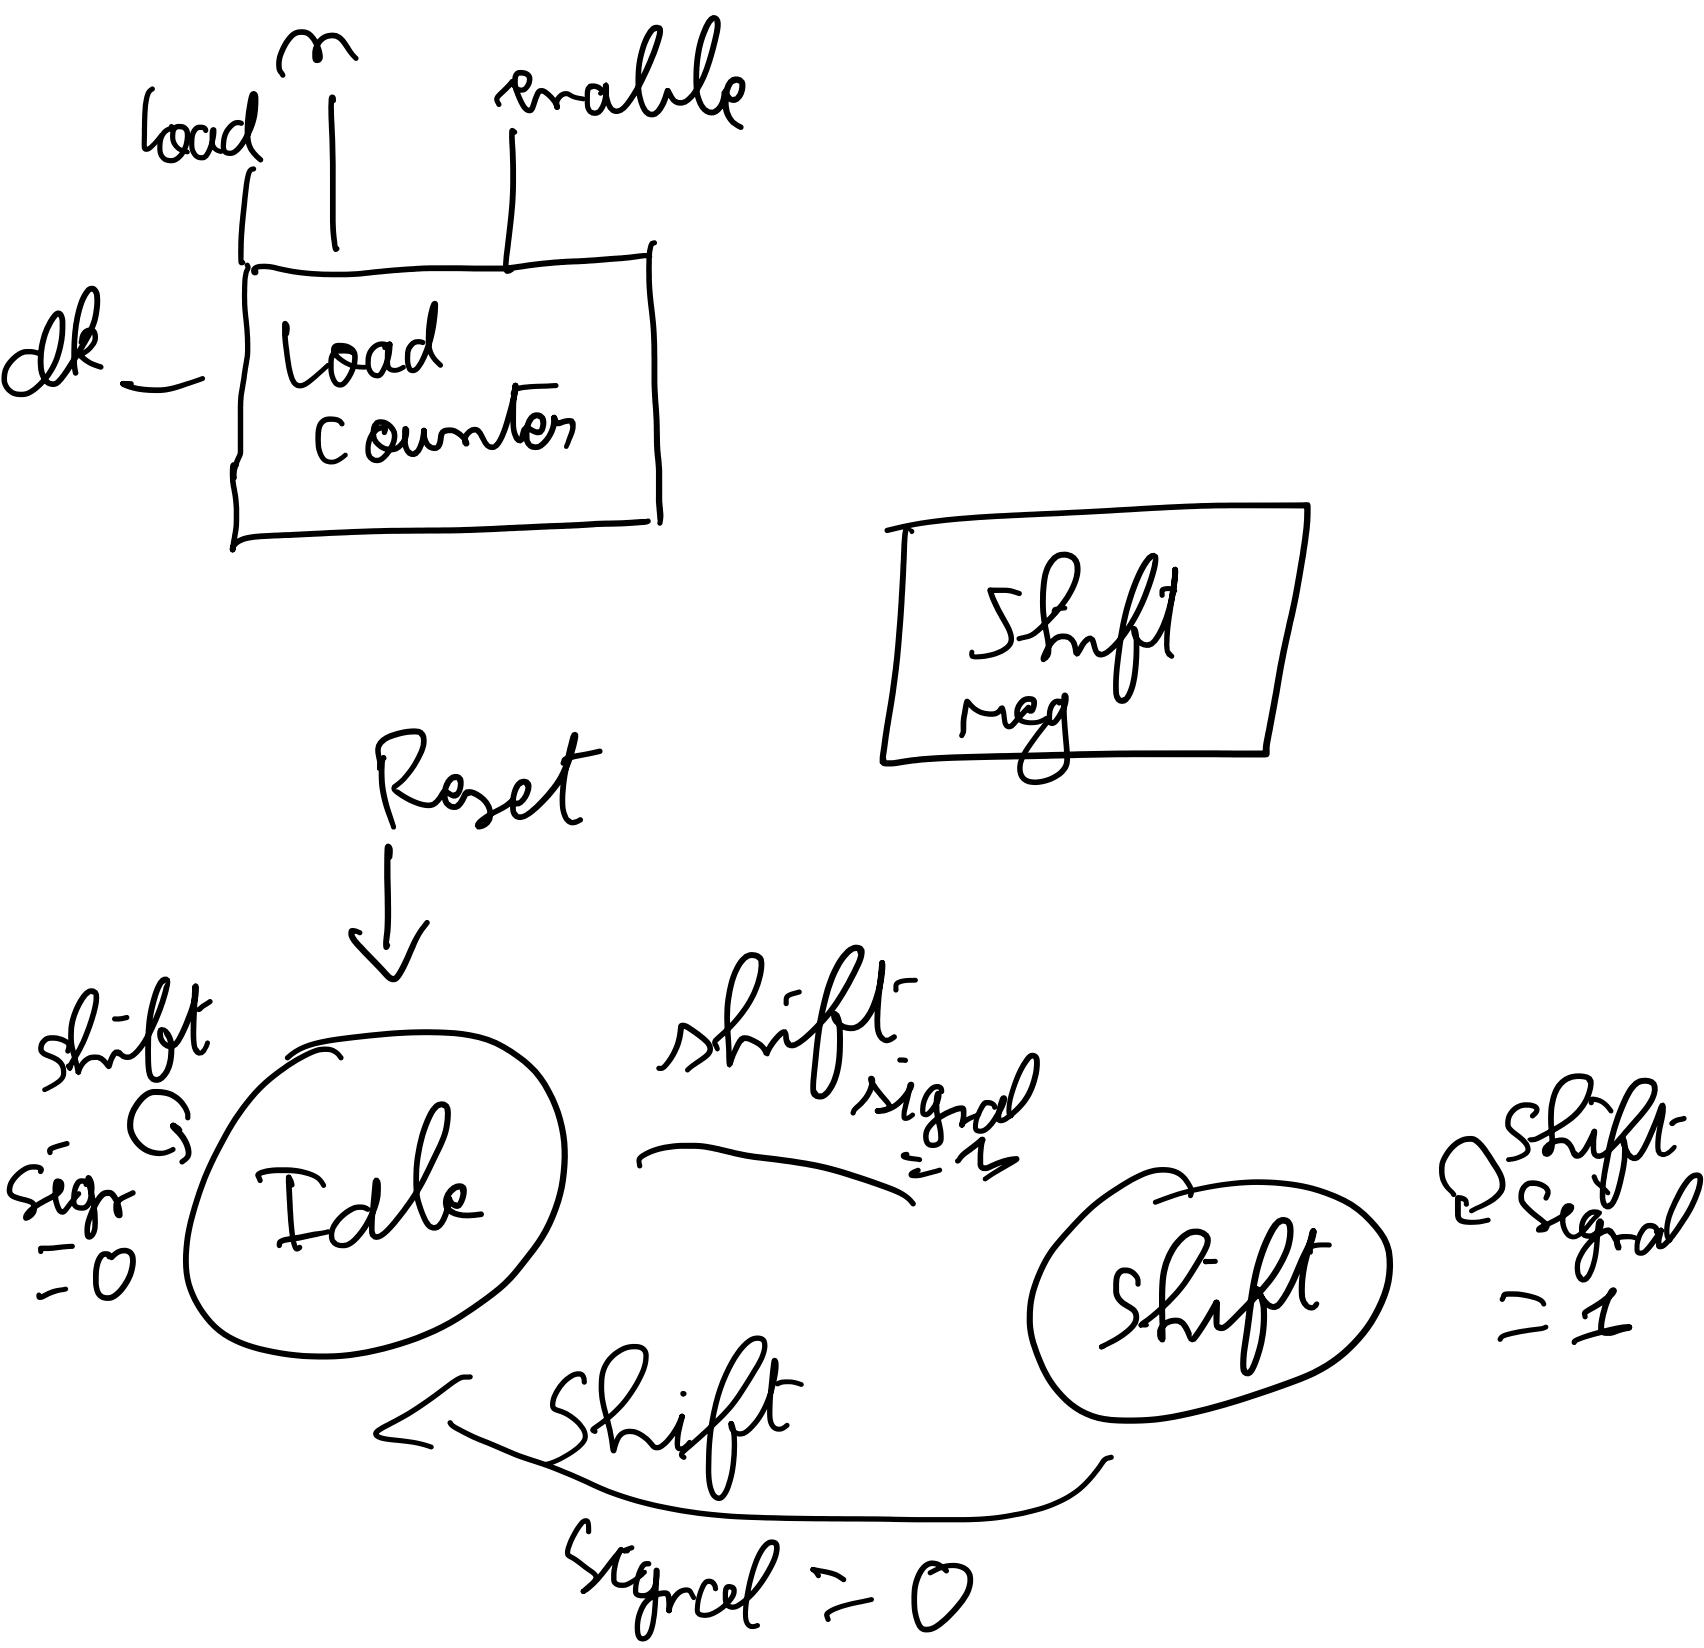 load
m
enable
clk
Load
counter
Shift
reg
Reset
shift
sign
=0
Idle
shift
signal
= 1
Shift
Shift
signal
= 1
Shift
signal = 0